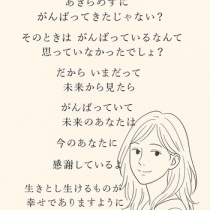 あきらめずに
がんばってきたじゃない?
そのときは がんばっているなんて
思っていなかったでしょ?
だから いまだって
未来から見たら
がんばっていて
未来のあなたは
今のあなたに
感謝しているよ
生きとし生けるものが
幸せでありますように